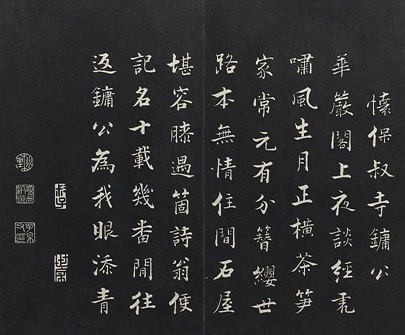 懷保叔寺鏞公
華嚴閣上夜談經虎
嘯風生月正橫茶笋
家常元有分簪纓世
路本無情住間石屋
堪容膝過箇詩翁便
記名十載幾番閒往
返鏞公為我眼添青